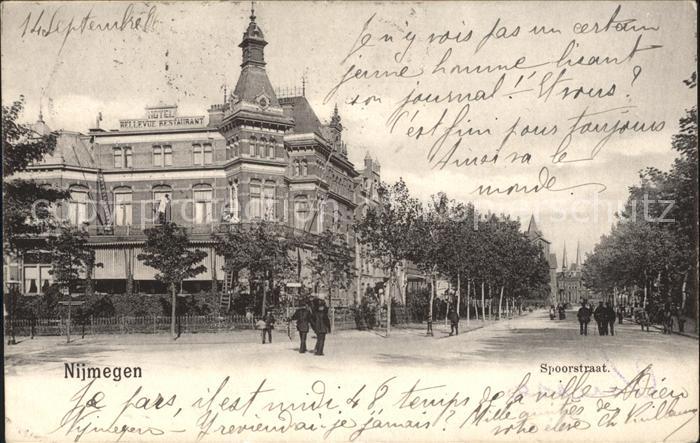 14 Septembre
Je n'y vois pas un certain
jeune homme lisant
son journal!! Et vous?
C'est fini pour toujours
Ainsi va le
monde.
HOTEL
BELLEVUE RESTAURANT
Nijmegen
Spoorstraat.
Je pars, il est midi 48 temps de la ville Adieu
Nijmegen - Y reviendrai-je jamais? Mille amitiés de
votre élève Ch